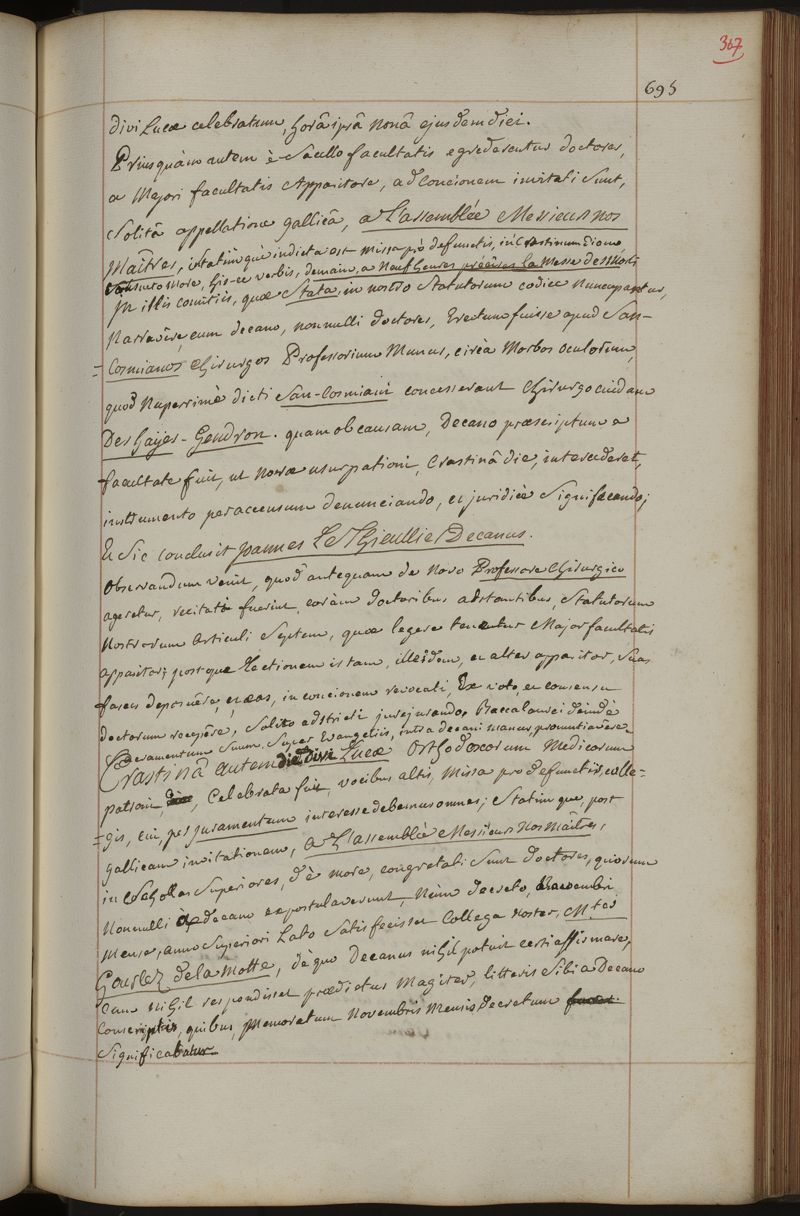 367
695
divi Lucæ celebratum, horâ ipsâ nonâ ejusdem diei.
Priusquàm autem è Sacello facultatis egrederentur doctores,
a Majori facultatis Apparitore, ad Concionem invitati sunt,
solitâ appellatione gallicâ, a L'assemblée Messieurs nos
Maîtres, statimque indicta est missa pro defunctis, in Crastinum diem
consueto more, his-ce verbis, demain, a Neuf heures précises La Messe des Morts
In illis comitiis, quæ Stata, in nostro Statutorum codice Nuncupantur,
Narravêre, cum decano, nonnulli doctores, Erectum fuisse apud San-
Cosmianos Chirurgos Professorium Munus, circà Morbos oculorum,
quod Nuperrimè dicti San-Cosmiani concesserant Chirurgo cuidam
Des haÿes-Gendron. quam ob causam, Decano præscriptum a
facultate fuit, ut novæ usurpationi, Crastinâ die, intercederet,
instrumento per accensum denunciando, et juridicè Significando;
Et Sic conclusit Joannes Le Thieullier Decanus.
Observandum venit, quod antequam de novo Professore Chirurgico
ageretur, recitati fuerint, coràm doctoribus adstantibus, Statutorum
Nostrorum Articuli Septem, quæ legere tenentur Major facultatis
apparitor; post quæ Lectionem istam, iisdem, et alter apparitor, suas
fasces deposuêre, et eas, in concionem revocati, Ex voto, et consensu
doctorum recepêre, Solito adstricti jurejurando. Baccalaurei deindè
Juramentum Suum, Super Evangeliis, intra decani manus, pronuntiavêre
Crastinâ autem die divi Lucæ Orthodoxorum Medicorum
patroni, Celebrata fuit, vocibus altis, missa pro defunctis, colle=
=gis, cui, per juramentum interesse debemus omnes; Statimque, post
gallicam invitationem, a L'assemblée Messieurs Nos Maîtres,
in Scholas Superiores, dè more, congregati sunt doctores, quorum
Nonnulli a decano expostulaverunt, Nùm decreto, Novembri
Mense, anno Superiori Lato Satisfecisset Collega Noster, M.ter
Gourlez de la Motte, de quo Decanus nihil potuit certi affirmare,
Cum nihil respondisset prædictus Magister, litteris Sibi a Decano
Conscriptis, quibus, Memoratum Novembris Mensis Decretum
Significabatur